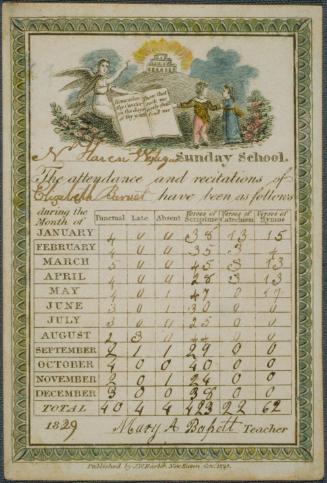 Remember those that
in the days of thy youth
N. Haven Sunday School.
The attendance and recitations of
Elizabeth have been as follows
during the Month of Punctual Late Absent Verses of Scripture Verses of Catechism Verses of Hymns
JANUARY 4 0 0 38 13 15
FEBRUARY 4 0 0 35 3 4
MARCH 5 0 0 45 3 13
APRIL 4 0 0 28 3 13
MAY 4 0 1 47 0 17
JUNE 3 1 0 30 0 0
JULY 3 0 25 0 0
AUGUST 2 3 0 44 0 0
SEPTEMBER 2 1 1 29 0 0
OCTOBER 4 0 0 40 0 0
NOVEMBER 2 0 1 24 0 0
DECEMBER 3 0 0 38 0 0
TOTAL 40 4 4 423 22 62
1829 Mary A Teacher
Published by J.W. Barber New Haven Con.